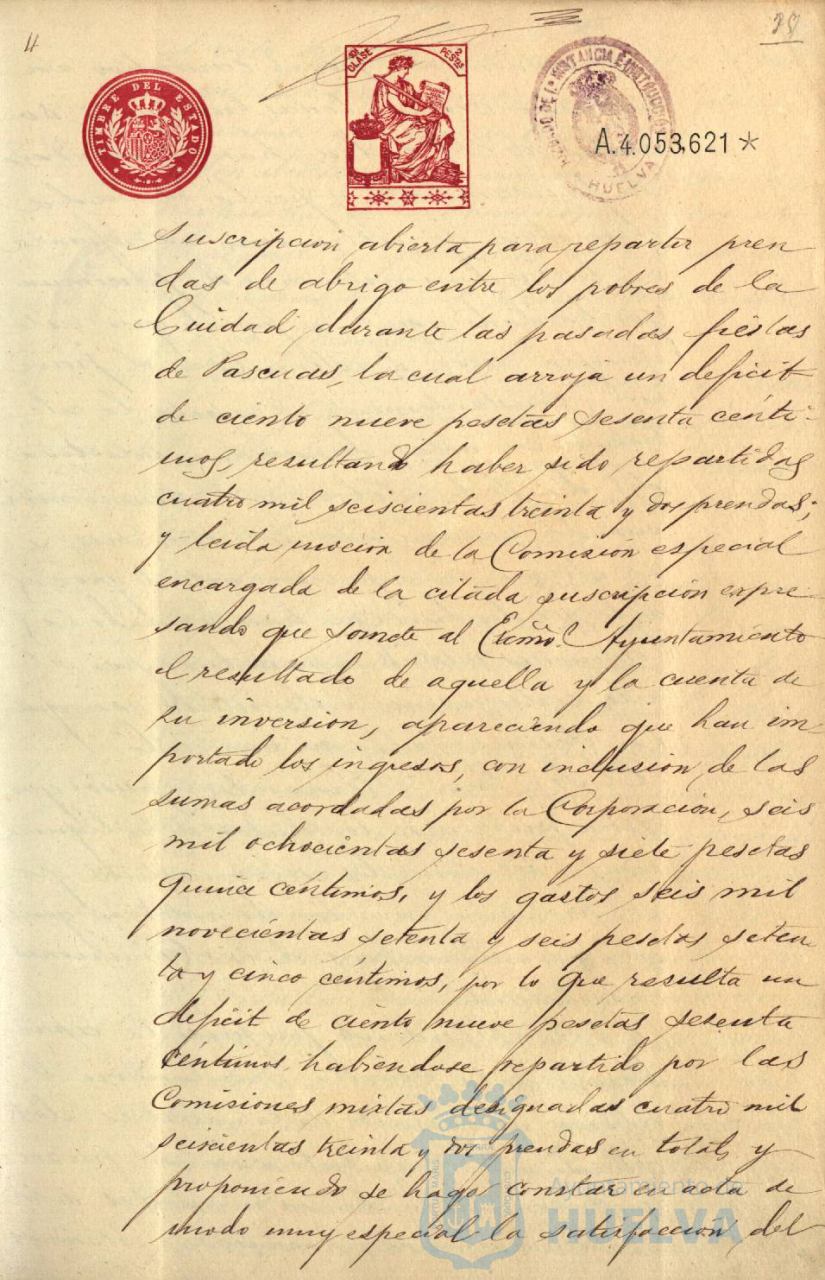 11
29
TIMBRE DEL ESTADO
XII CLASE 2 PESTAS
JUZGADO DE 1ª INSTANCIA E INSTRUCCION
HUELVA
A.4.053.621 *
suscripción abierta para repartir pren
das de abrigo entre los pobres de la
Ciudad durante las pasadas fiestas
de Pascuas, la cual arroja un deficit
de ciento nueve pesetas sesenta cénti-
mos, resultando haber sido repartidas
cuatro mil seiscientas treinta y dos prendas;
y leida moción de la Comisión especial
encargada de la citada suscripción expre
sando que somete al Excmo. Ayuntamiento
el resultado de aquella y la cuenta de
su inversión, apareciendo que han im-
portado los ingresos, con inclusión de las
sumas acordadas por la Corporación, seis
mil ochocientas sesenta y siete pesetas
quince céntimos, y los gastos seis mil
novecientas setenta y seis pesetas seten
ta y cinco céntimos, por lo que resulta un
deficit de ciento nueve pesetas sesenta
céntimos, habiéndose repartido por las
Comisiones mixtas designadas cuatro mil
seiscientas treinta y dos prendas en total, y
proponiendo se haga constar en acta de
modo muy especial la satisfacción del
Ayuntamiento de
HUELVA